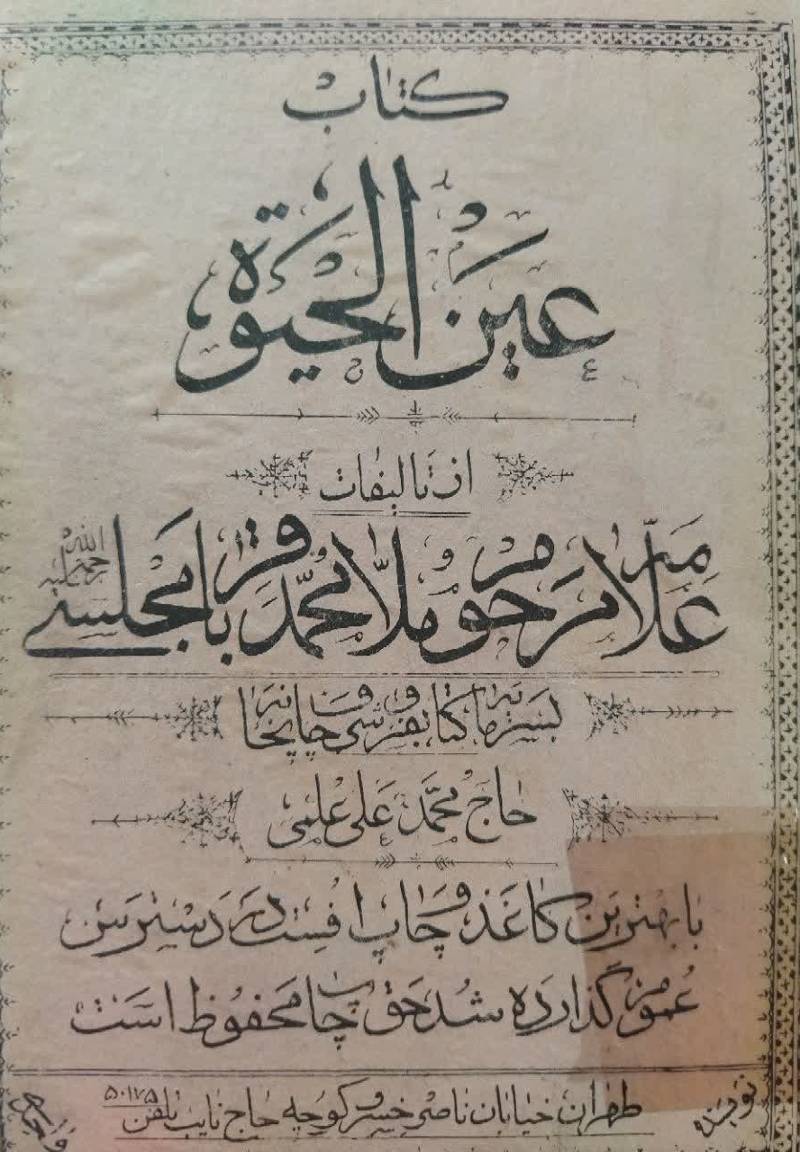 کتاب
عین الحیوة
از تالیفات
علامه مرحوم ملا محمد باقر مجلسی
بسرمایه کتابفروشی و چاپخانه
حاج محمد علی علمی
با بهترین کاغذ و چاپ افست در دسترس
عموم گذارده شد حق چاپ محفوظ است
طهران خیابان ناصر خسرو کوچه حاج نایب تلفن ۵۰۱۷۵